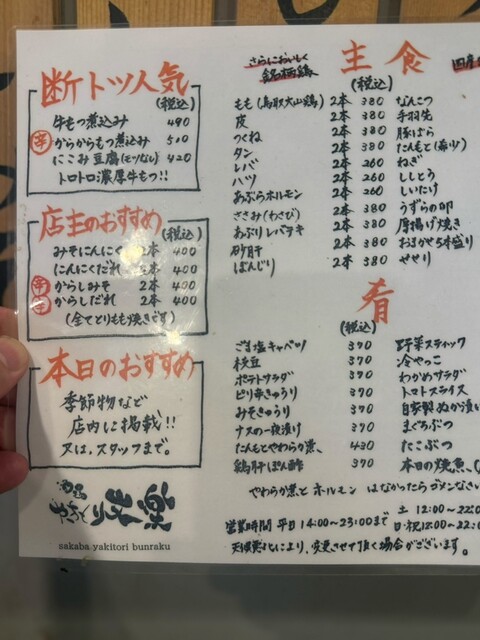 断トツ人気
(税込)
牛もつ煮込み 490
辛 からからもつ煮込み 510
にこみ豆腐(モツなし) 420
トロトロ濃厚牛もつ!!
店主のおすすめ
(税込)
みそにんにく 2本 400
にんにくだれ 2本 400
辛 からしみそ 2本 400
辛 からしだれ 2本 400
(全てとりもも焼きです)
本日のおすすめ
季節物など
店内に掲載!!
又は、スタッフまで。
酒場
やきとり
文楽
sakaba yakitori bunraku
さらにおいしく
銘柄鶏
主食
(税込)
もも(鳥取大山鶏) 2本 380
皮 2本 380
つくね 2本 380
タン 2本 380
レバ 2本 260
ハツ 2本 260
あぶらホルモン 2本 260
ささみ(わさび) 2本 380
あぶりレバテキ 2本 380
砂肝 2本 380
ぼんじり 2本 380
なんこつ
手羽先
豚ばら
たんもと(希少)
ねぎ
ししとう
しいたけ
うずらの卵
厚揚げ焼き
おまかせ5本盛り
せせり
肴
(税込)
ごま塩キャベツ 370
枝豆 370
ポテトサラダ 370
ピリ辛きゅうり 370
みそきゅうり 370
ナスの一夜漬け 370
たんもとやわらか煮、 430
鶏肝ぽん酢 370
野菜スティック
冷やっこ
わかめサラダ
トマトスライス
自家製ぬか漬け
まぐろぶつ
たこぶつ
本日の焼魚、
やわらか煮と ホルモン はなかったらゴメンなさい
営業時間 平日 14:00~23:00まで
土 12:00~22:0
日・祝 12:00~22:0
天候悪化により、変更させて頂く場合がございます。